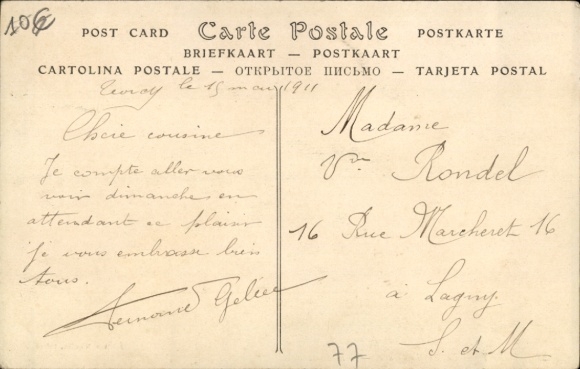 10€
POST CARD Carte Postale POSTKARTE
BRIEFKAART — POSTKAART
CARTOLINA POSTALE — ОТКРЫТОЕ ПИСЬМО — TARJETA POSTAL
le 15 mai 1911
Chère cousine
Je compte aller vous
voir dimanche en
attendant ce plaisir
je vous embrasse bien
tous.
Fernand
Madame
Vve Rondel
16 Rue Marcheret 16
à Lagny
S. et M
77